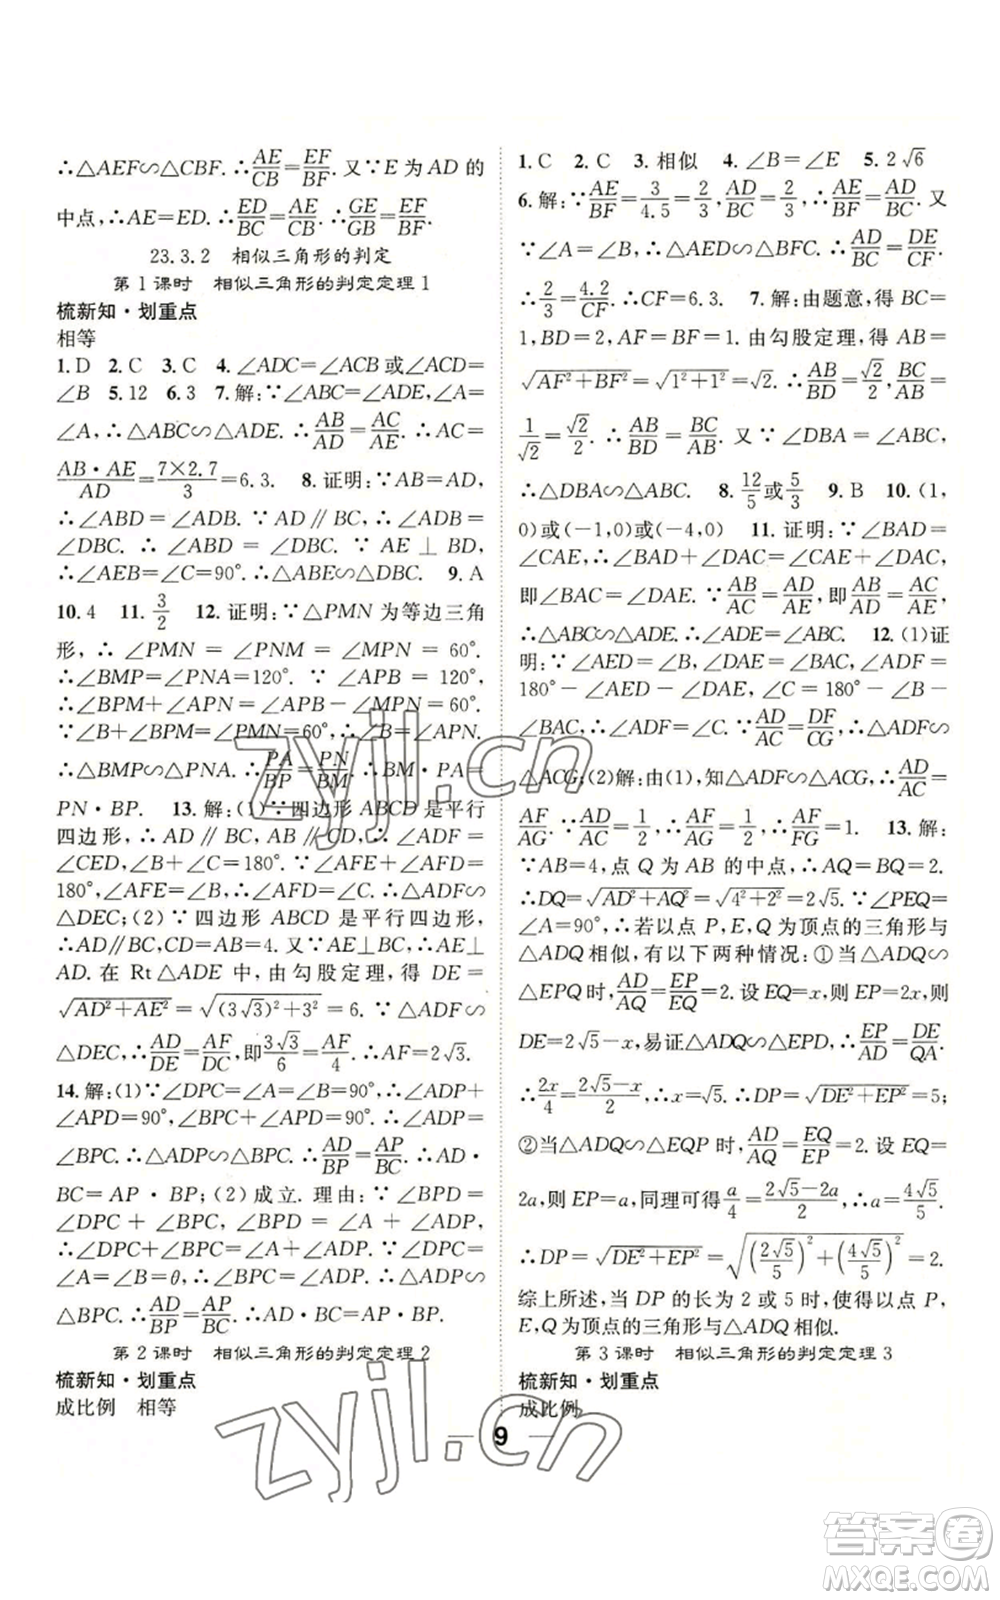 ∴△AEF∽△CBF.∴AE/CB=EF/BF.又∵E为AD的
中点,∴AE=ED.∴ED/BC=AE/CB.∴GE/GB=EF/BF.
23.3.2 相似三角形的判定
第1课时 相似三角形的判定定理1
梳新知·划重点
相等
1.D 2.C 3.C 4.∠ADC=∠ACB或∠ACD=
∠B 5.12 6.3 7.解:∵∠ABC=∠ADE,∠A=
∠A,∴△ABC∽△ADE.∴AB/AD=AC/AE.∴AC=
AB·AE/AD=7×2.7/3=6.3. 8.证明:∵AB=AD,
∴∠ABD=∠ADB.∵AD∥BC,∴∠ADB=
∠DBC.∴∠ABD=∠DBC.∵AE⊥BD,
∴∠AEB=∠C=90°.∴△ABE∽△DBC. 9.A
10.4 11.3/2 12.证明:∵△PMN为等边三角
形,∴∠PMN=∠PNM=∠MPN=60°.
∴∠BMP=∠PNA=120°.∵∠APB=120°,
∴∠BPM+∠APN=∠APB-∠MPN=60°.
∵∠B+∠BPM=∠PMN=60°,∴∠B=∠APN.
∴△BMP∽△PNA.∴PA/BP=PN/BM.∴BM·PA=
PN·BP. 13.解:(1)∵四边形ABCD是平行
四边形,∴AD∥BC,AB∥CD.∴∠ADF=
∠CED,∠B+∠C=180°.∵∠AFE+∠AFD=
180°,∠AFE=∠B,∴∠AFD=∠C.∴△ADF∽
△DEC;(2)∵四边形ABCD是平行四边形,
∴AD∥BC,CD=AB=4.又∵AE⊥BC,∴AE⊥
AD.在Rt△ADE中,由勾股定理,得DE=
√(AD²+AE²)=√((3√3)²+3²)=6.∵△ADF∽
△DEC,∴AD/DE=AF/DC,即3√3/6=AF/4.∴AF=2√3.
14.解:(1)∵∠DPC=∠A=∠B=90°,∴∠ADP+
∠APD=90°,∠BPC+∠APD=90°.∴∠ADP=
∠BPC.∴△ADP∽△BPC.∴AD/BP=AP/BC.∴AD·
BC=AP·BP;(2)成立.理由:∵∠BPD=
∠DPC+∠BPC,∠BPD=∠A+∠ADP,
∴∠DPC+∠BPC=∠A+∠ADP.∵∠DPC=
∠A=∠B=θ,∴∠BPC=∠ADP.∴△ADP∽
△BPC.∴AD/BP=AP/BC.∴AD·BC=AP·BP.
第2课时 相似三角形的判定定理2
梳新知·划重点
成比例 相等
1.C 2.C 3.相似 4.∠B=∠E 5.2√6
6.解:∵AE/BF=3/4.5=2/3,AD/BC=2/3,∴AE/BF=AD/BC.又
∵∠A=∠B,∴△AED∽△BFC.∴AD/BC=DE/CF.
∴2/3=4.2/CF.∴CF=6.3. 7.解:由题意,得BC=
1,BD=2,AF=BF=1.由勾股定理,得AB=
√(AF²+BF²)=√(1²+1²)=√2.∴AB/BD=√2/2,BC/AB=
1/√2=√2/2.∴AB/BD=BC/AB.又∵∠DBA=∠ABC,
∴△DBA∽△ABC. 8.12/5或5/3 9.B 10.(1,
0)或(-1,0)或(-4,0) 11.证明:∵∠BAD=
∠CAE,∴∠BAD+∠DAC=∠CAE+∠DAC,
即∠BAC=∠DAE.∵AB/AC=AD/AE,∴AB/AD=AC/AE.
∴△ABC∽△ADE.∴∠ADE=∠ABC. 12.(1)证
明:∵∠AED=∠B,∠DAE=∠BAC,∠ADF=
180°-∠AED-∠DAE,∠C=180°-∠B-
∠BAC,∴∠ADF=∠C.∵AD/AC=DF/CG,∴△ADF∽
△ACG;(2)解:由(1),知△ADF∽△ACG,∴AD/AC=
AF/AG.∵AD/AC=1/2,∴AF/AG=1/2,∴AF/FG=1. 13.解:
∵AB=4,点Q为AB的中点,∴AQ=BQ=2.
∴DQ=√(AD²+AQ²)=√(4²+2²)=2√5.∵∠PEQ=
∠A=90°,∴若以点P,E,Q为顶点的三角形与
△ADQ相似,有以下两种情况:①当△ADQ∽
△EPQ时,AD/AQ=EP/EQ=2.设EQ=x,EP=2x,则
DE=2√5-x,易证△ADQ∽△EPD,∴EP/AD=DE/QA.
∴2x/4=(2√5-x)/2,∴x=√5.∴DP=√(DE²+EP²)=5;
②当△ADQ∽△EQP时,AD/AQ=EQ/EP=2.设EQ=
2a,则EP=a,同理可得a/4=(2√5-2a)/2,∴a=4√5/5.
∴DP=√(DE²+EP²)=√((2√5/5)²+(4√5/5)²)=2.
综上所述,当DP的长为2或5时,使得以点P,
E,Q为顶点的三角形与△ADQ相似.
第3课时 相似三角形的判定定理3
梳新知·划重点
成比例
9
zyjl.cn
zyjl.cn
答案圈
MXQE.COM